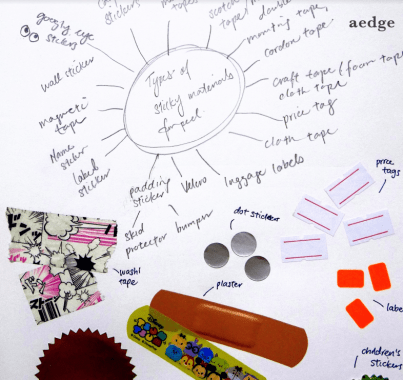 stickers
tapes
scotch
tape
double
mounting tape,
aedge
googly eye
stickers
cordon tape
wall sticker
Types of
sticky materials
for peel.
craft tape / foam tape
cloth tape
magnetic
tape
price tag
Name
sticker
cloth tape
label
sticker
luggage labels
padding
sticker
Velcro
price
tags
skid
protector
bumper
dot stickers
washi
tape
plaster
label
children's
stickers